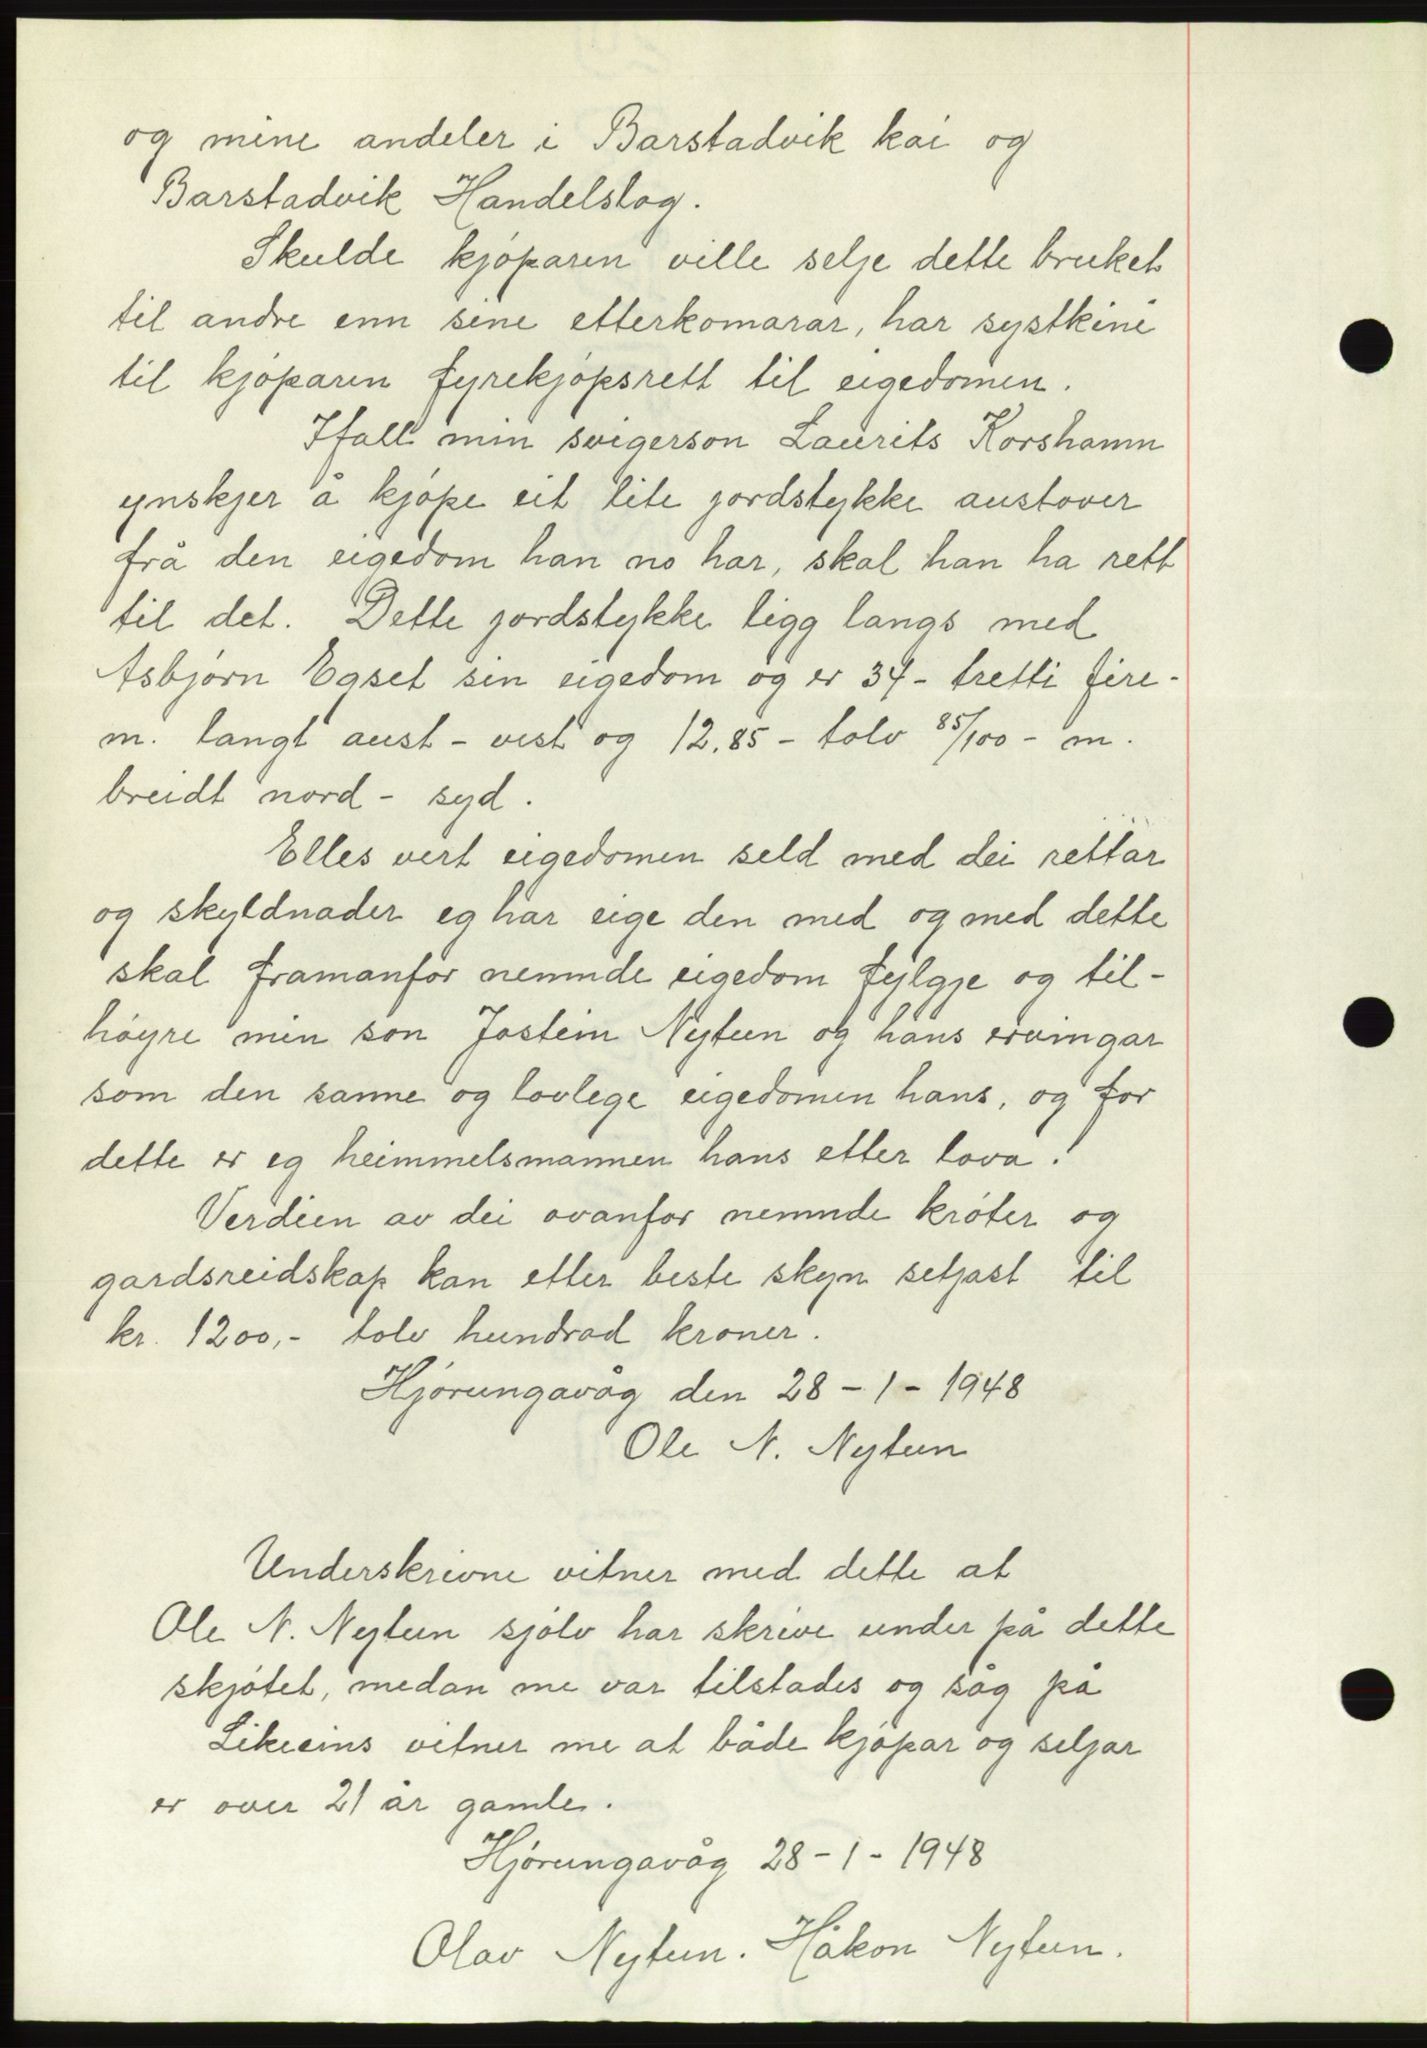 og mine andeler i Barstadvik kai og
Barstadvik Handelslog.
Skulde kjøparen ville selje dette bruket
til andre enn sine etterkomarar, har systkine
til kjøparen fyrekjøpsrett til eigedomen.
Ifall min svigerson Laurits Korshamn
ynskjer å kjøpe eit lite jordstykke austover
frå den eigedom han no har, skal han ha rett
til det. Dette jordstykke ligg langs med
Asbjørn Egset sin eigedom og er 34 - tretti fire -
m. langt aust - vest og 12,85 - tolv 85/100 - m.
breidt nord - syd.
Elles vert eigedomen seld med dei rettar
og skyldnader eg har eige den med og med dette
skal framanfor nemnde eigedom fylgje og til-
høyre min son Jostein Nytun og hans ervingar
som den sanne og lovlege eigedomen hans, og for
dette er eg heimmelsmannen hans etter lova.
Verdien av dei ovanfor nemnde krøter og
gardsreidskap kan etter beste skyn setjast til
kr. 1200,- tolv hundrad kroner.
Hjørungavåg den 28 - 1 - 1948
Ole N. Nytun
Underskrivne vitner med dette at
Ole N. Nytun sjølv har skrive under på dette
skjøtet, medan me var tilstades og såg på
Likeeins vitner me at både kjøpar og seljar
er over 21 år gamle.
Hjørungavåg 28 - 1 - 1948
Olav Nytun. Håkon Nytun.